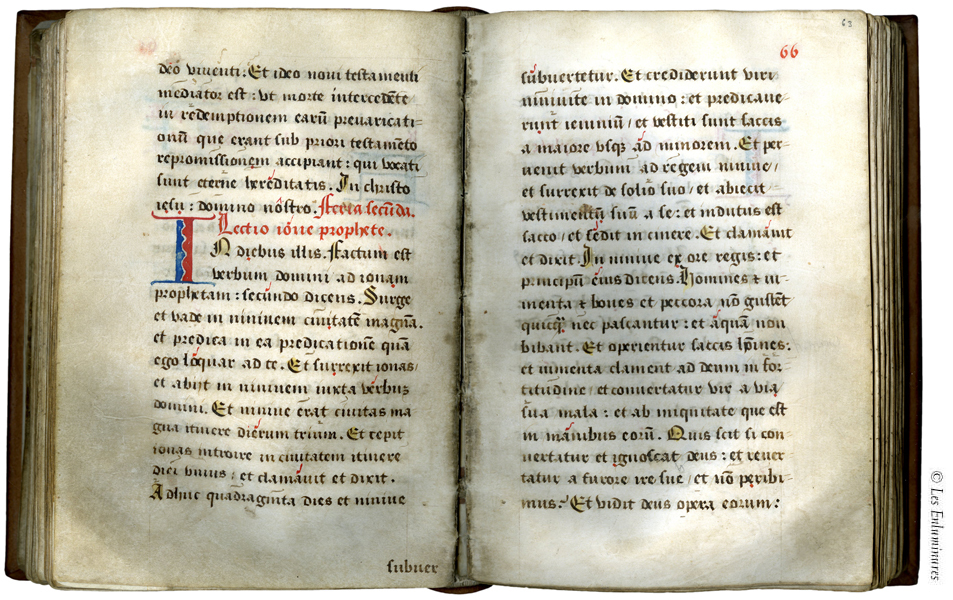 deo viventi: Et ideo novi testamenti
mediator est: ut morte intercedēte
in redemptionem earū prevaricati-
onū que erant sub priori testamēto
repromissionem accipiant: qui vocati
sunt eterne hereditatis. In christo
iesu: domino nostro. Feria secūda.
Lectio ione prophete.
IN diebus illis. Factum est
verbum domini ad ionam
prophetam: secundo dicens. Surge
et vade in niniven civitatē magnā.
et predica in ea predicationē quā
ego loquar ad te. Et surrexit ionas/
et abijt in niniven iuxta verbuz
domini. Et ninive erat civitas ma
gna itinere dierum trium. Et cepit
ionas introire in civitatem itinere
diei unius: et clamavit et dixit.
Adhuc quadraginta dies et ninive
subver
63
66
subvertetur. Et crediderunt viri
ninivite in domino: et predicave-
runt ieiuniū/ et vestiti sunt saccis
a maiore usqz ad minorem. Et per-
venit verbum ad regem ninive/
et surrexit de solio suo/ et abiecit
vestimentū suū a se: et indutus est
sacco/ et sedit in cinere. Et clamavit
et dixit. In ninive ex ore regis: et
principū eius dicens. Homines et iu-
menta et boves et peccora nō gustēt
quicqz nec pascantur: et aquā non
bibant. Et operientur saccis hoīnes:
et iumenta clament ad deum in for-
titudine/ et convertatur vir a via/
sua mala: et ab iniquitate que est
in manibus eorū. Quis scit si con-
vertatur et ignoscat deus: et rever-
tatur a furore ire sue/ et nō peribi-
mus: Et vidit deus opera eorum:
© Les Enluminures